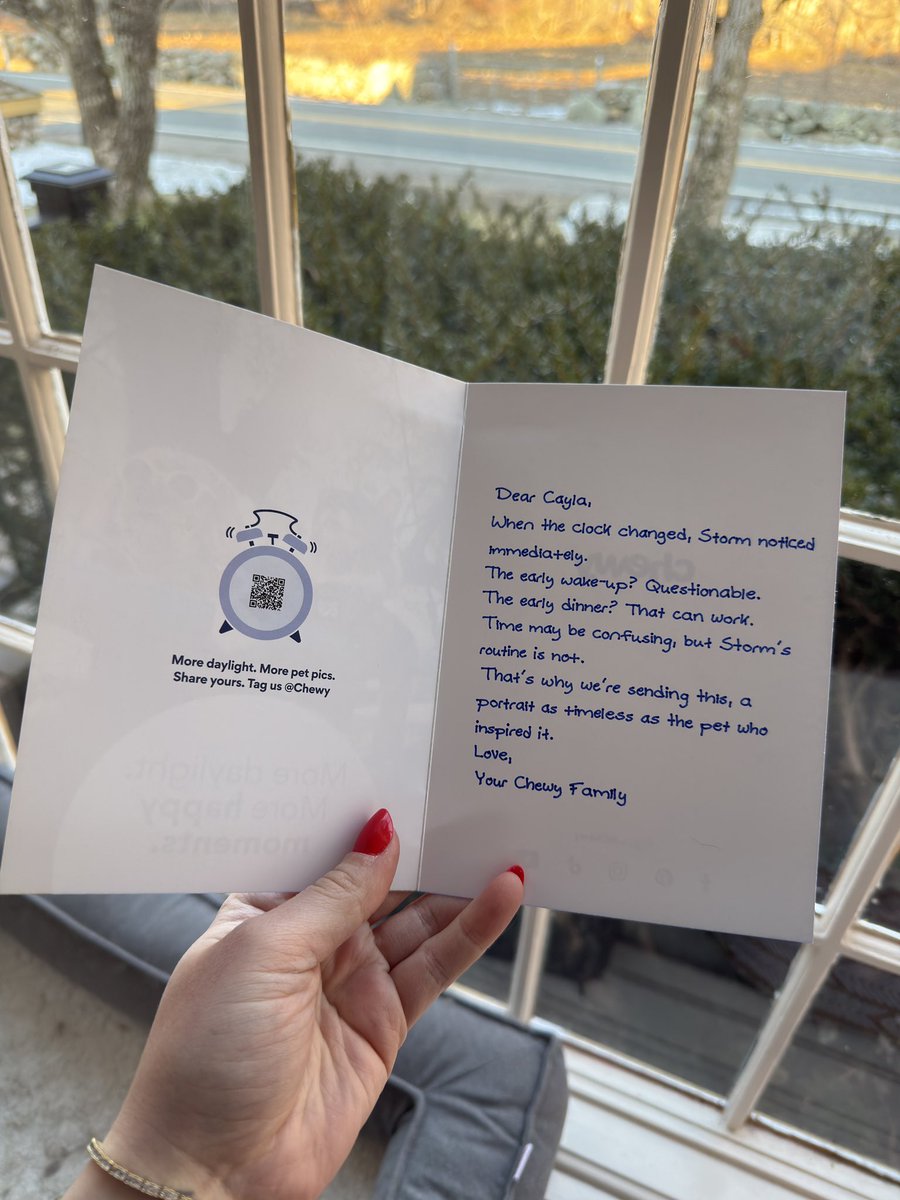 More daylight. More pet pics.
Share yours. Tag us @Chewy
More daylight.
More happy
moments.
Dear Cayla,
When the clock changed, Storm noticed
immediately.
The early wake-up? Questionable.
The early dinner? That can work.
Time may be confusing, but Storm's
routine is not.
That's why we're sending this, a
portrait as timeless as the pet who
inspired it.
Love,
Your Chewy Family
chewy